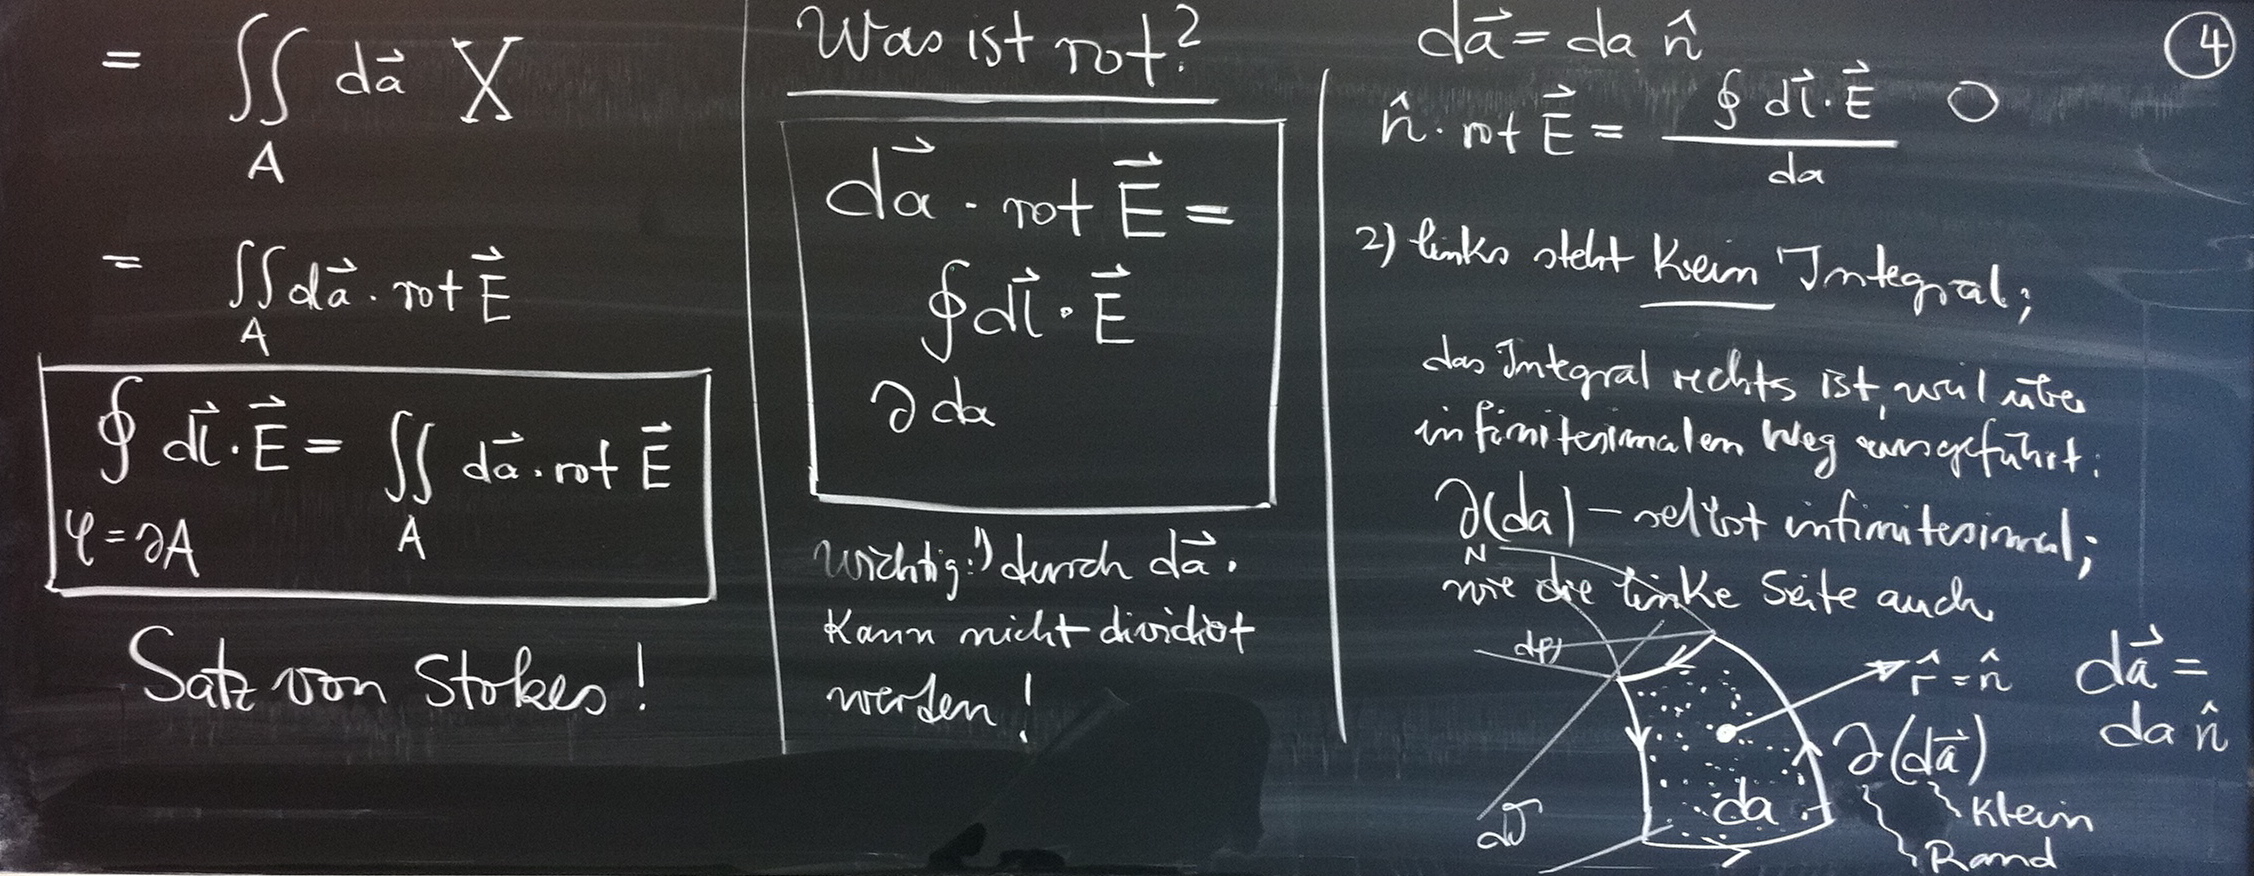 = ∬ da⃗ X
A
= ∬ da⃗ · rot E⃗
A
∮ dl⃗ · E⃗ = ∬ da⃗ · rot E⃗
φ = ∂A A
Satz von Stokes!
Was ist rot?
da⃗ · rot E⃗ =
∮ dl⃗ · E⃗
∂ da
wichtig: 1) durch da⃗.
Kann nicht dividiert
werden!
④
da⃗ = da n̂
n̂ · rot E⃗ = ∮ dl⃗ · E⃗ ○
da
2) links steht Kein Integral;
das Integral rechts ist, weil über
infinitesimalem Weg ausgeführt.
∂(da) – selbst infinitesimal;
N
wie die linke Seite auch
dφ
r̂ = n̂
da⃗ =
da n̂
∂(da⃗)
da
Klein
Rand
dϑ